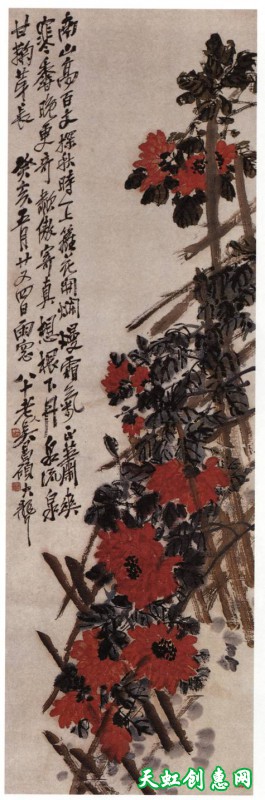 南山高百丈採秋時上籬花開爛熳霜氣正蕭森
寒香晚更奇龍傲寄真想根下丹泉流泉
甘鞠華長 癸亥五月廿又四日雨窗 八十老人吳昌碩大聾
天虹创惠网